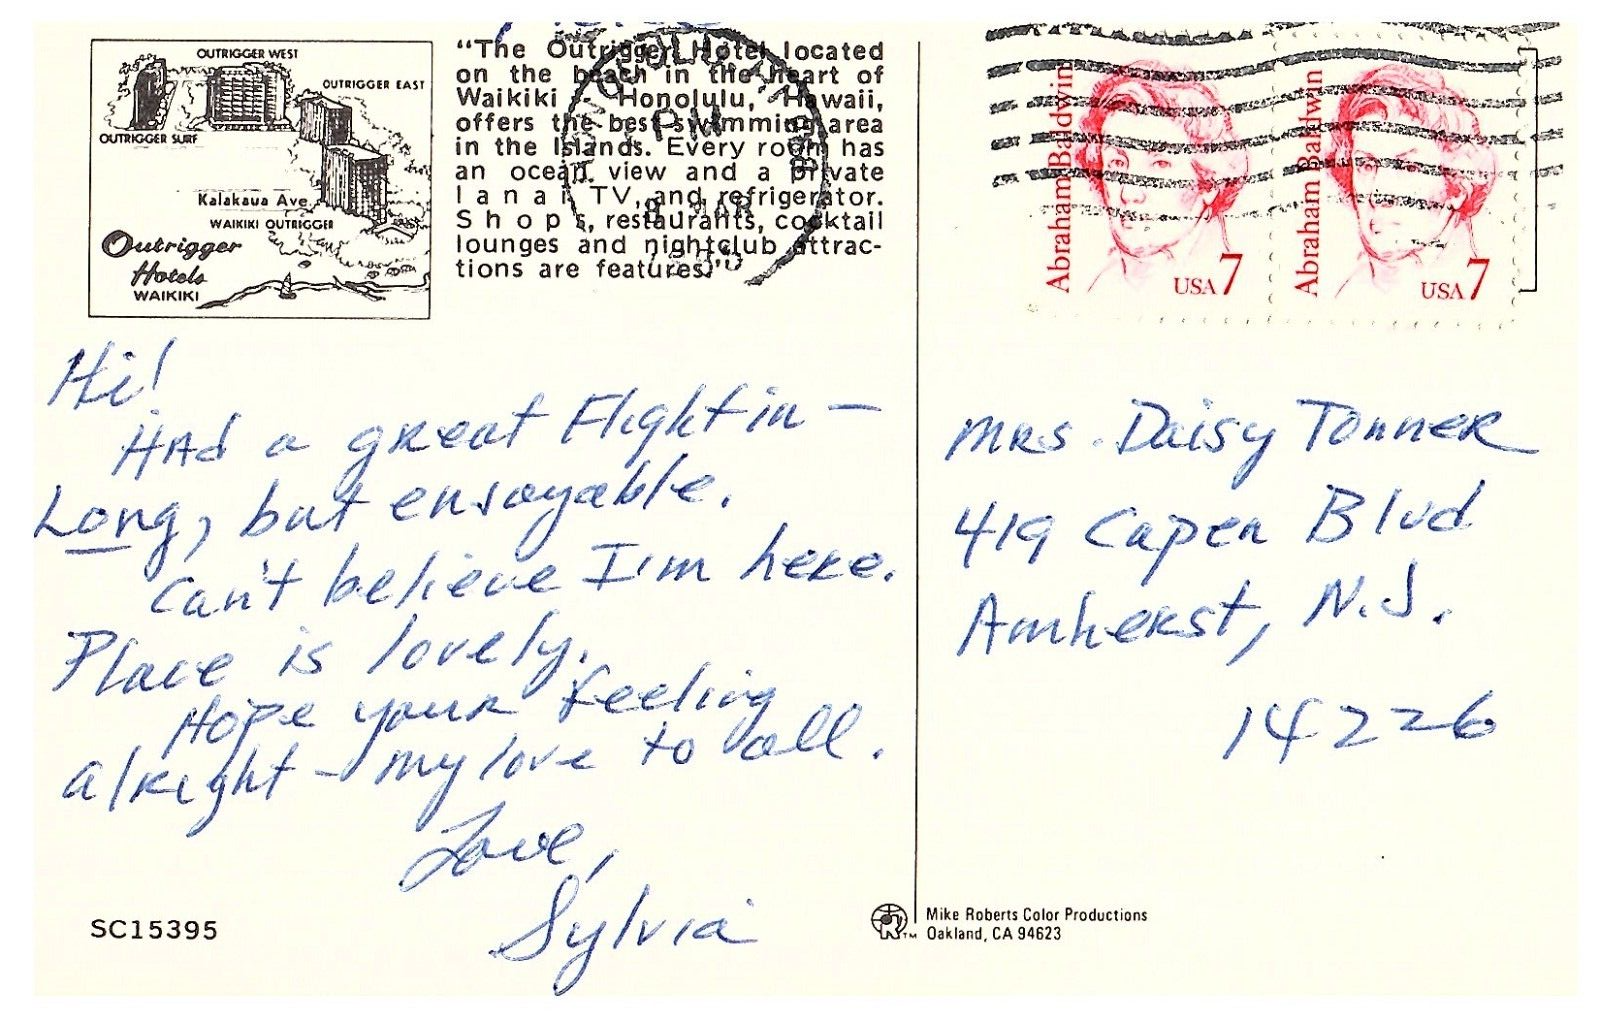 OUTRIGGER WEST
OUTRIGGER EAST
OUTRIGGER SURF
Kalakaua Ave.
WAIKIKI OUTRIGGER
Outrigger
Hotels
WAIKIKI
“The Outrigger Hotel located
on the beach in the heart of
Waikiki - Honolulu, Hawaii,
offers the best swimming area
in the Islands. Every room has
an ocean view and a private
lanai, TV, and refrigerator.
Shops, restaurants, cocktail
lounges and nightclub attrac-
tions are features.”
Hi!
HAd a great Flight in —
Long, but ensoyable.
Can't believe I'm here.
Place is lovely.
Hope your feeling
alright - my love to all.
Love,
Sylvia
SC15395
Abraham Baldwin
USA 7
Abraham Baldwin
USA 7
PM
MRS. Daisy Tonner
419 Capen Blvd
Amherst, N.J.
14226
Mike Roberts Color Productions
Oakland, CA 94623